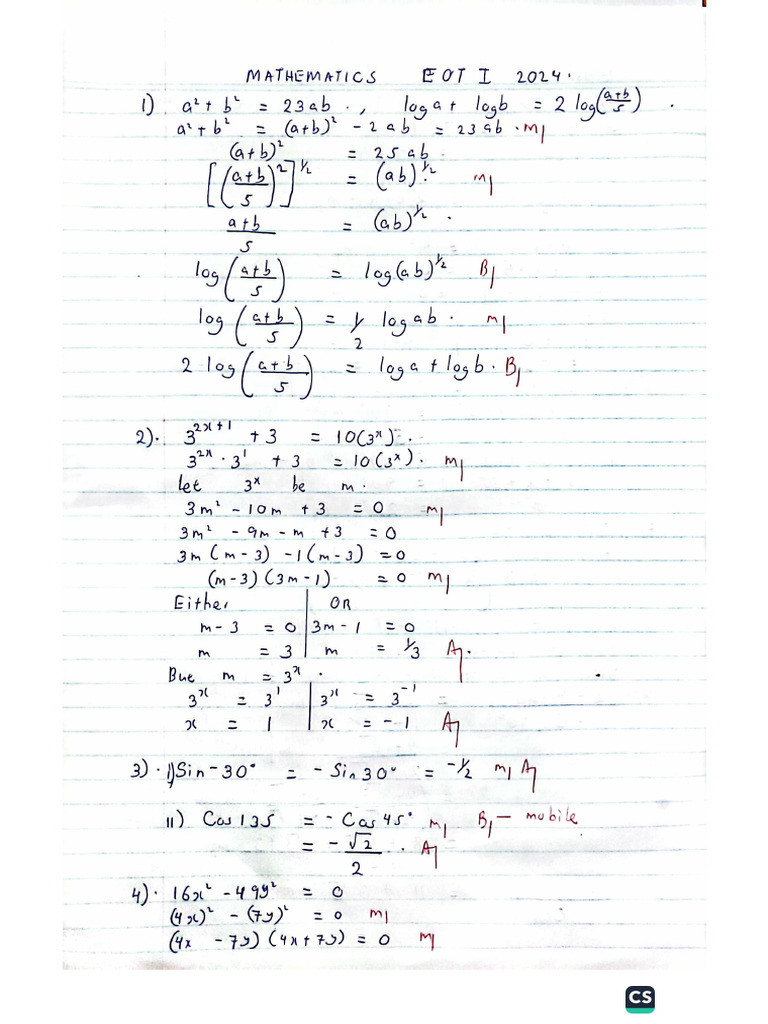 MATHEMATICS EOT I 2024.
1) a² + b² = 23ab ., log a + log b = 2 log((a+b)/5) .
a² + b² = (a+b)² - 2ab = 23ab . M1
(a+b)² = 25ab.
[((a+b)/5)²]^1/2 = (ab)^1/2. M1
(a+b)/5 = (ab)^1/2 .
log((a+b)/5) = log(ab)^1/2 B1
log((a+b)/5) = 1/2 log ab . M1
2 log((a+b)/5) = log a + log b . B1
2). 3^(2x+1) + 3 = 10(3^x) .
3^2x . 3^1 + 3 = 10(3^x) . M1
let 3^x be m .
3m² - 10m + 3 = 0 M1
3m² - 9m - m + 3 = 0
3m(m-3) -1(m-3) = 0
(m-3)(3m-1) = 0 M1
Either | OR
m-3 = 0 | 3m-1 = 0
m = 3 | m = 1/3 A1.
But m = 3^x .
3^x = 3^1 | 3^x = 3^-1
x = 1 | x = -1 A1
3) . i) Sin -30° = - Sin 30° = -1/2 M1 A1
ii) Cos 135 = - Cos 45° M1 B1 - mobile
= - √2/2 . A1
4) . 16x² - 49y² = 0
(4x)² - (7y)² = 0 M1
(4x - 7y)(4x + 7y) = 0 M1
CS